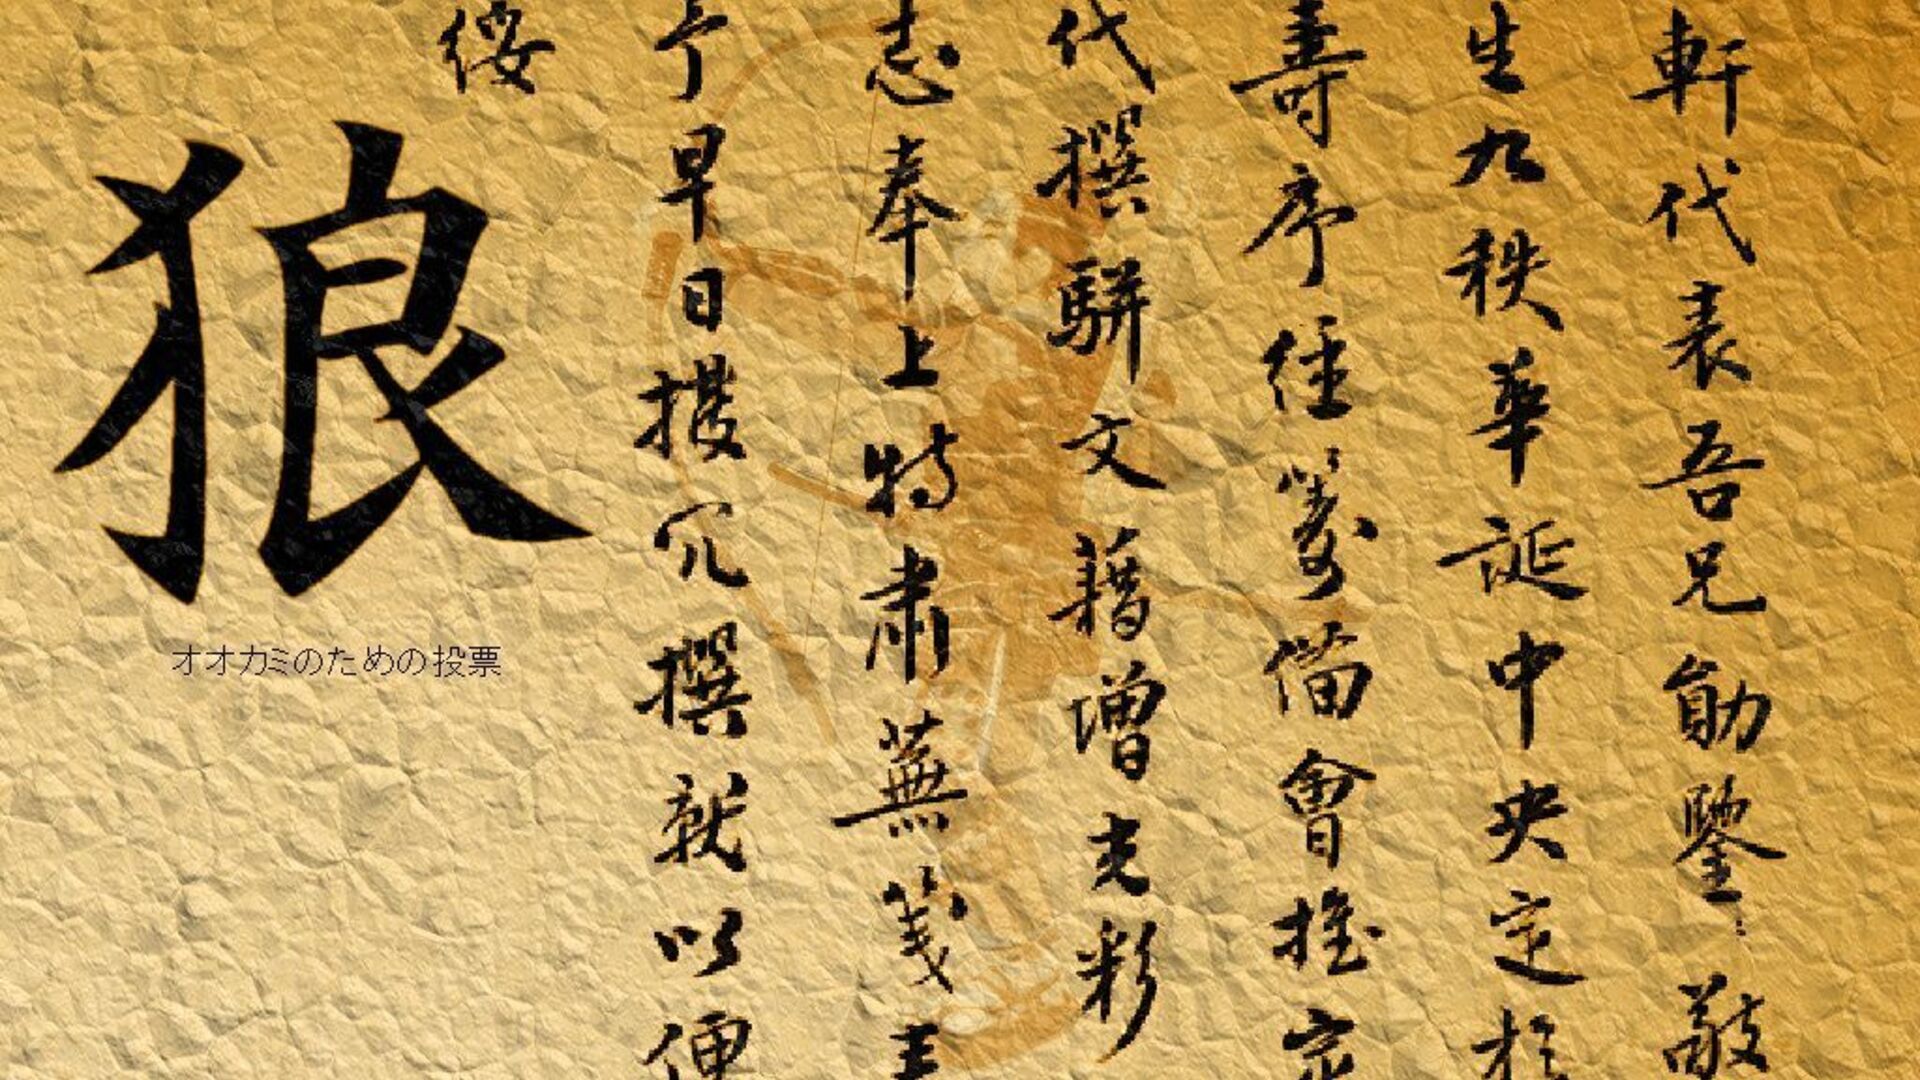 軒代表吾兄勛鑒敬
生九秩華誕中央定於
壽序經籌備會推定
代撰駢文藉增光彩
志奉上特肅蕪箋
予早日撥冗撰就以便
綏
狼
オオカミのための投票